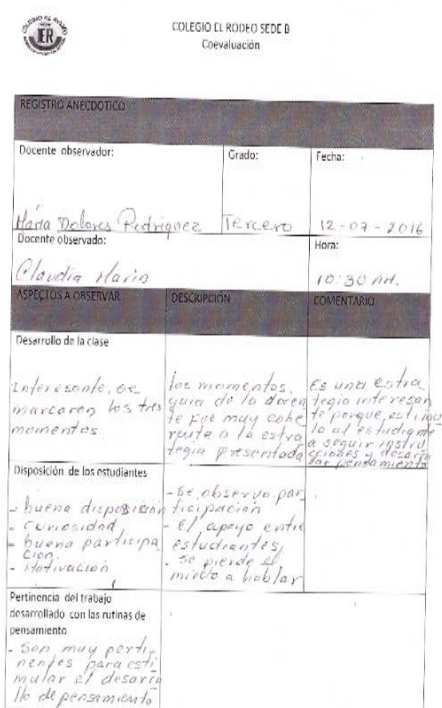 COLEGIO EL RODEO SEDE B
Coevaluación
ER
REGISTRO ANECDOTICO
Docente observador:
Grado:
Fecha:
Maria Dolores Rodriguez
Tercero
12-07-2016
Docente observado:
Hora:
Claudia Marin
10:30 AM.
ASPECTOS A OBSERVAR
DESCRIPCIÓN
COMENTARIO
Desarrollo de la clase
Interesante, se
marcaron los tres
momentos
los momentos,
guia de la docen
te fue muy cohe
rente a la estra
tegia presentada
Es una estra
tegia interesan
te porque estimu
la al estudiante
a seguir instru
cciones y desarro
llar pensamiento
Disposición de los estudiantes
- buena disposición
- curiosidad
- buena participa
cion.
- Motivación
- Se observo par
ticipación
- El apoyo entre
estudiantes,
- se pierde el
miedo a hablar
Pertinencia del trabajo
desarrollado con las rutinas de
pensamiento
- Son muy perti
nentes para esti
mular el desarro
llo de pensamiento